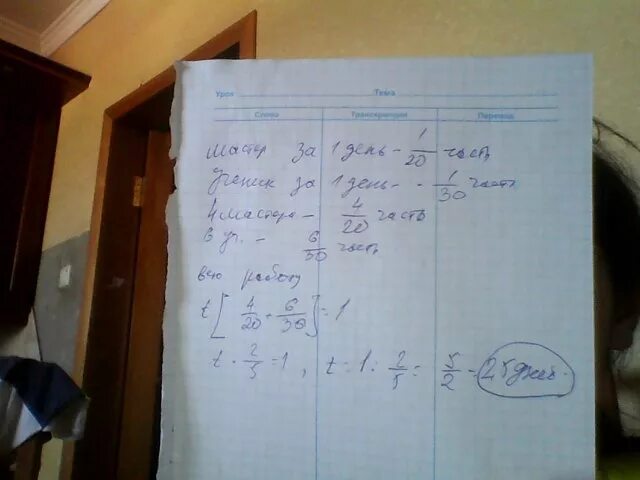 Урок Тема
Слово Транскрипция Перевод
Мастер за 1 день - 1/20 часть
Ученик за 1 день - - 1/30 часть
4 мастера - 4/20 часть
6 уч. - 6/30 часть
всю работу
t[4/20 + 6/30] = 1
t · 2/5 = 1, t = 1 : 2/5 = 5/2 = 2,5 дней.